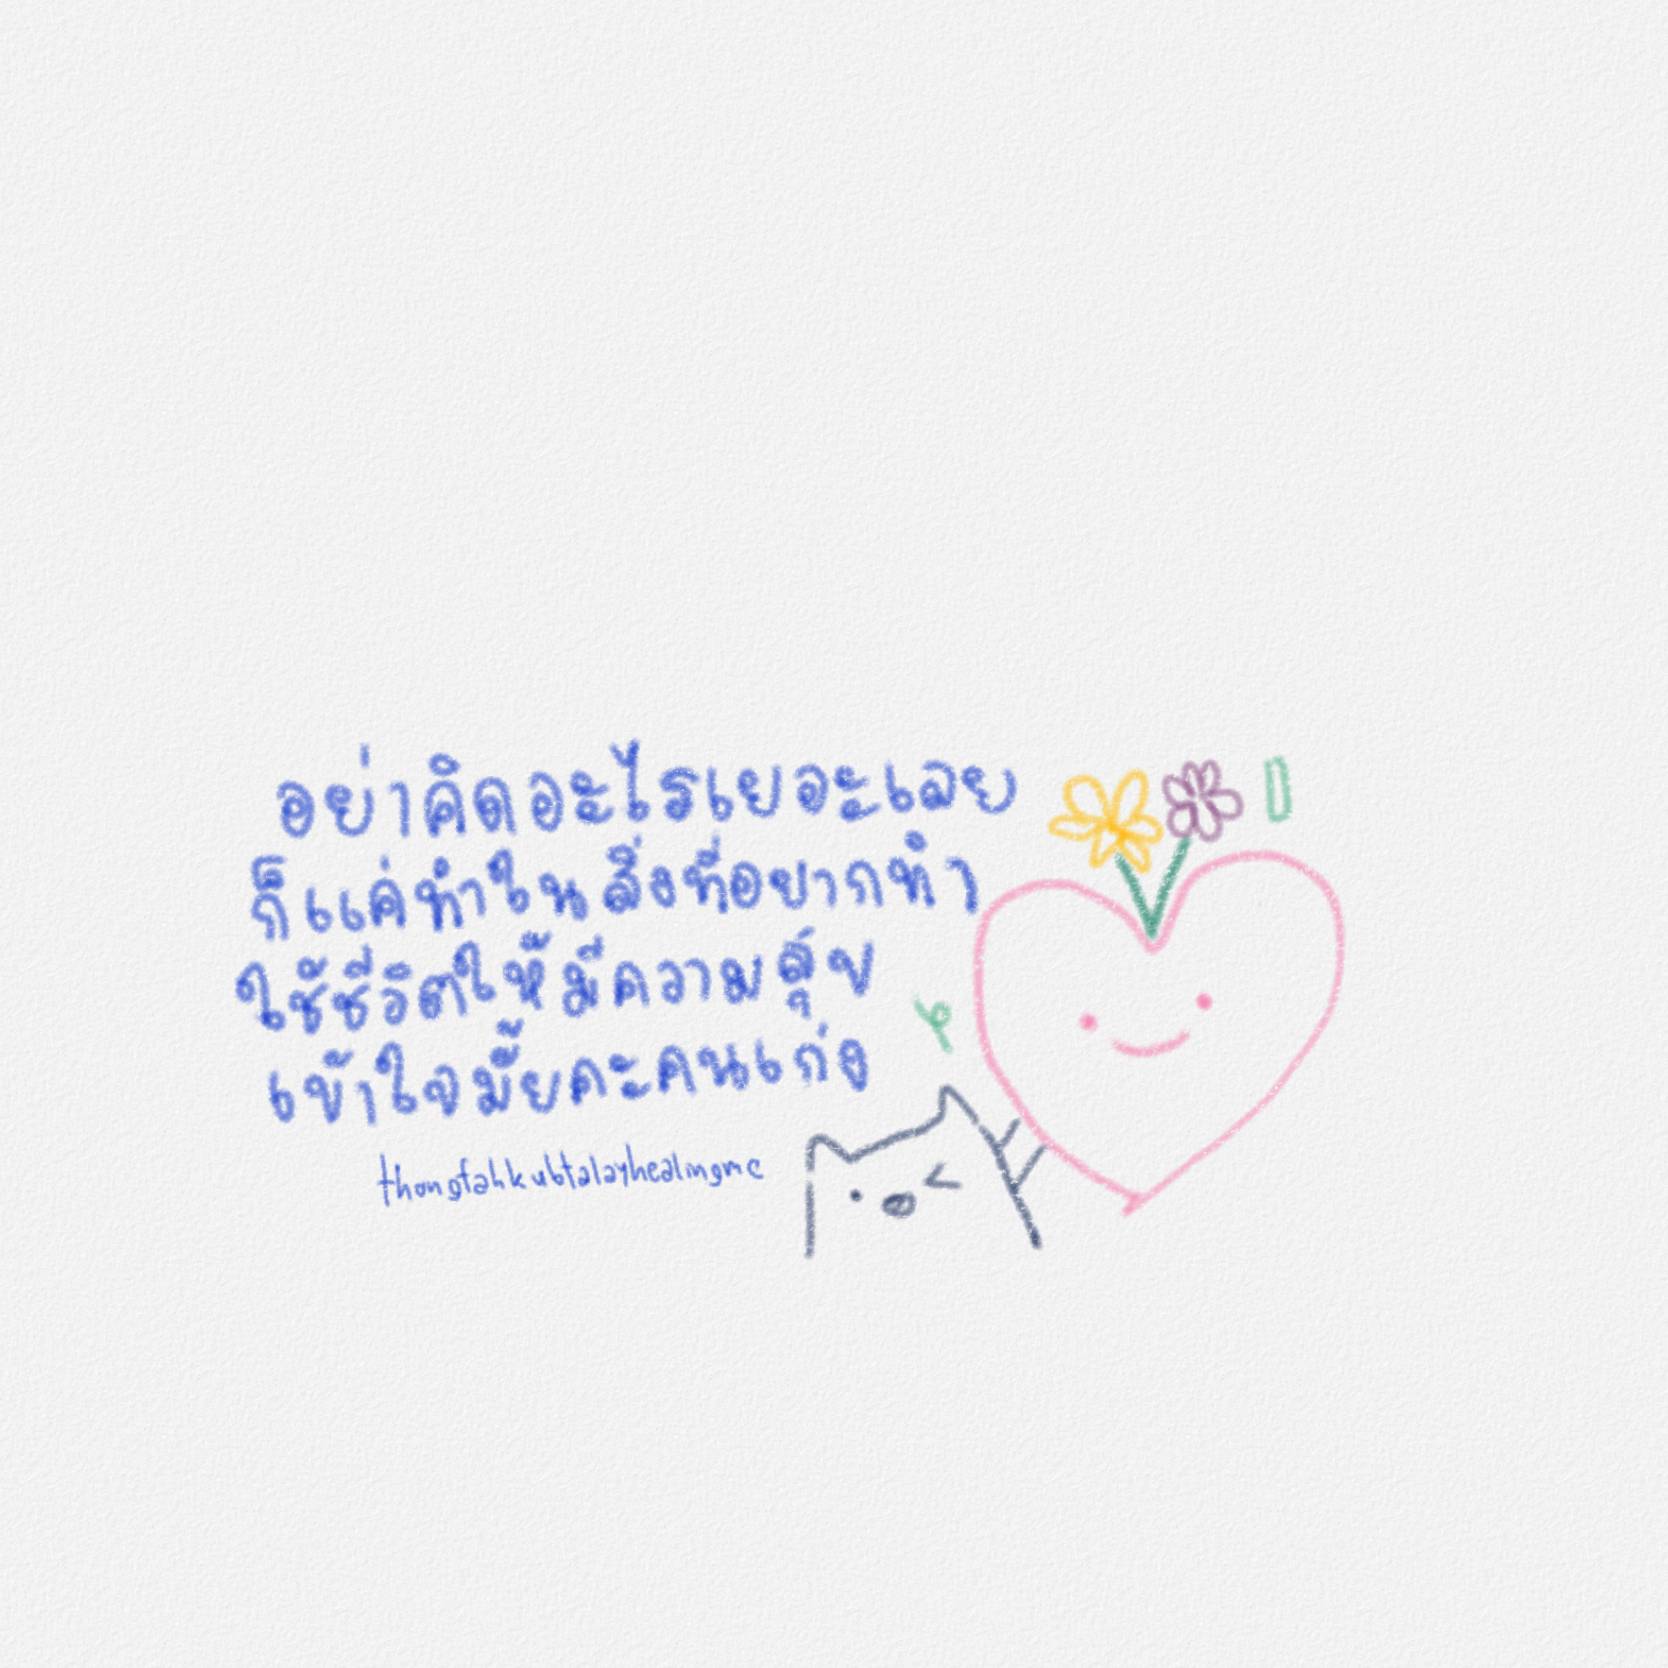 อย่าคิดอะไรเยอะเลย
ก็แค่ทำในสิ่งที่อยากทำ
ใช้ชีวิตให้มีความสุข
เข้าใจมั้ยคะคนเก่ง
thongfahkubtalayhealingme